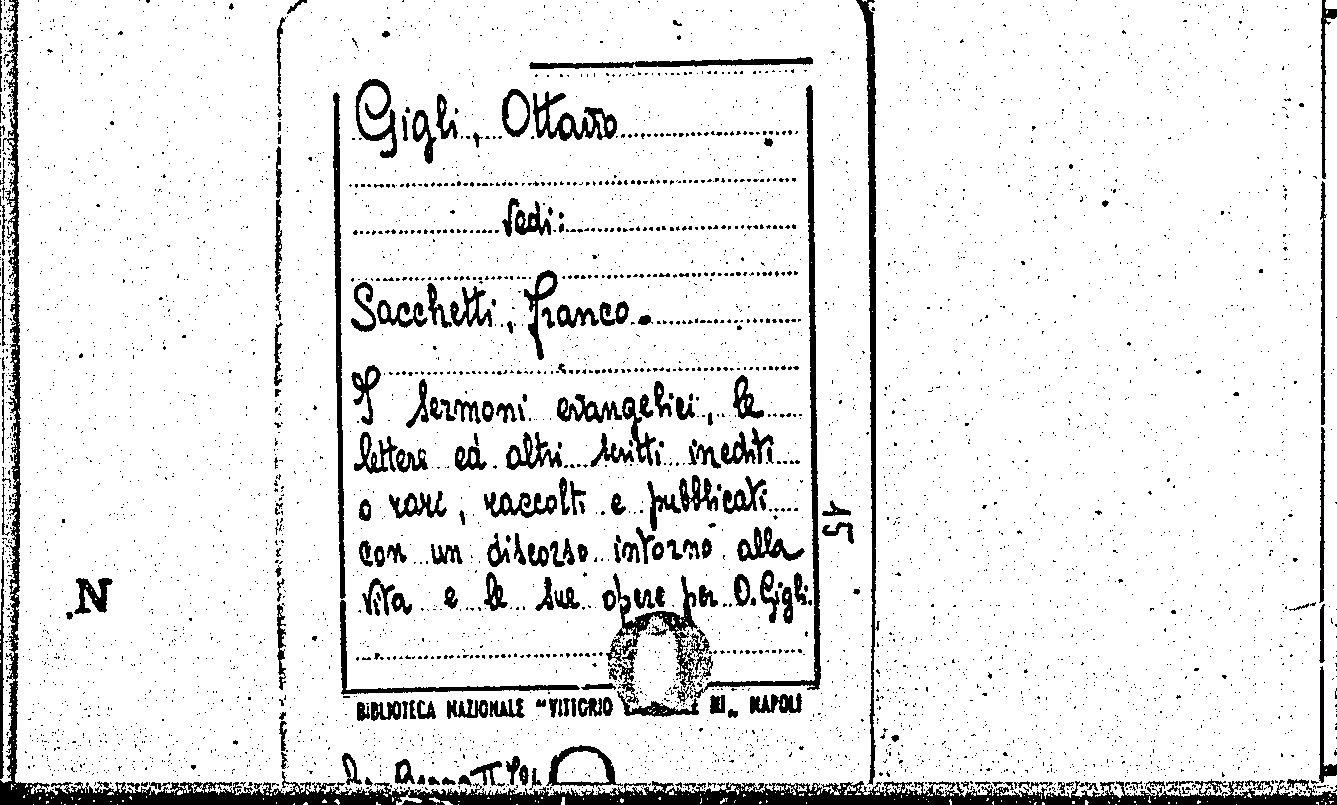 Gigli, Ottavio
vedi:
Sacchetti, Franco.
I sermoni evangelici, le
lettere ed altri scritti inediti
o rari, raccolti e pubblicati
con un discorso intorno alla
vita e le sue opere per O. Gigli.
15
N
BIBLIOTECA NAZIONALE "VITTORIO III„ NAPOLI